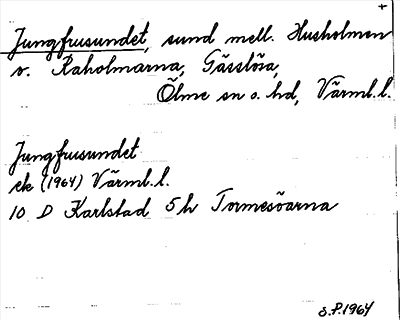 +
Jungfrusundet, sund mell. Husholmen
o. Raholmarna, Gässlösa,
Ölme sn o. hd, Värml.l.
Jungfrusundet
ek (1964) Värml.l.
10 D Karlstad 5h Tormesöarna
S.P. 1964